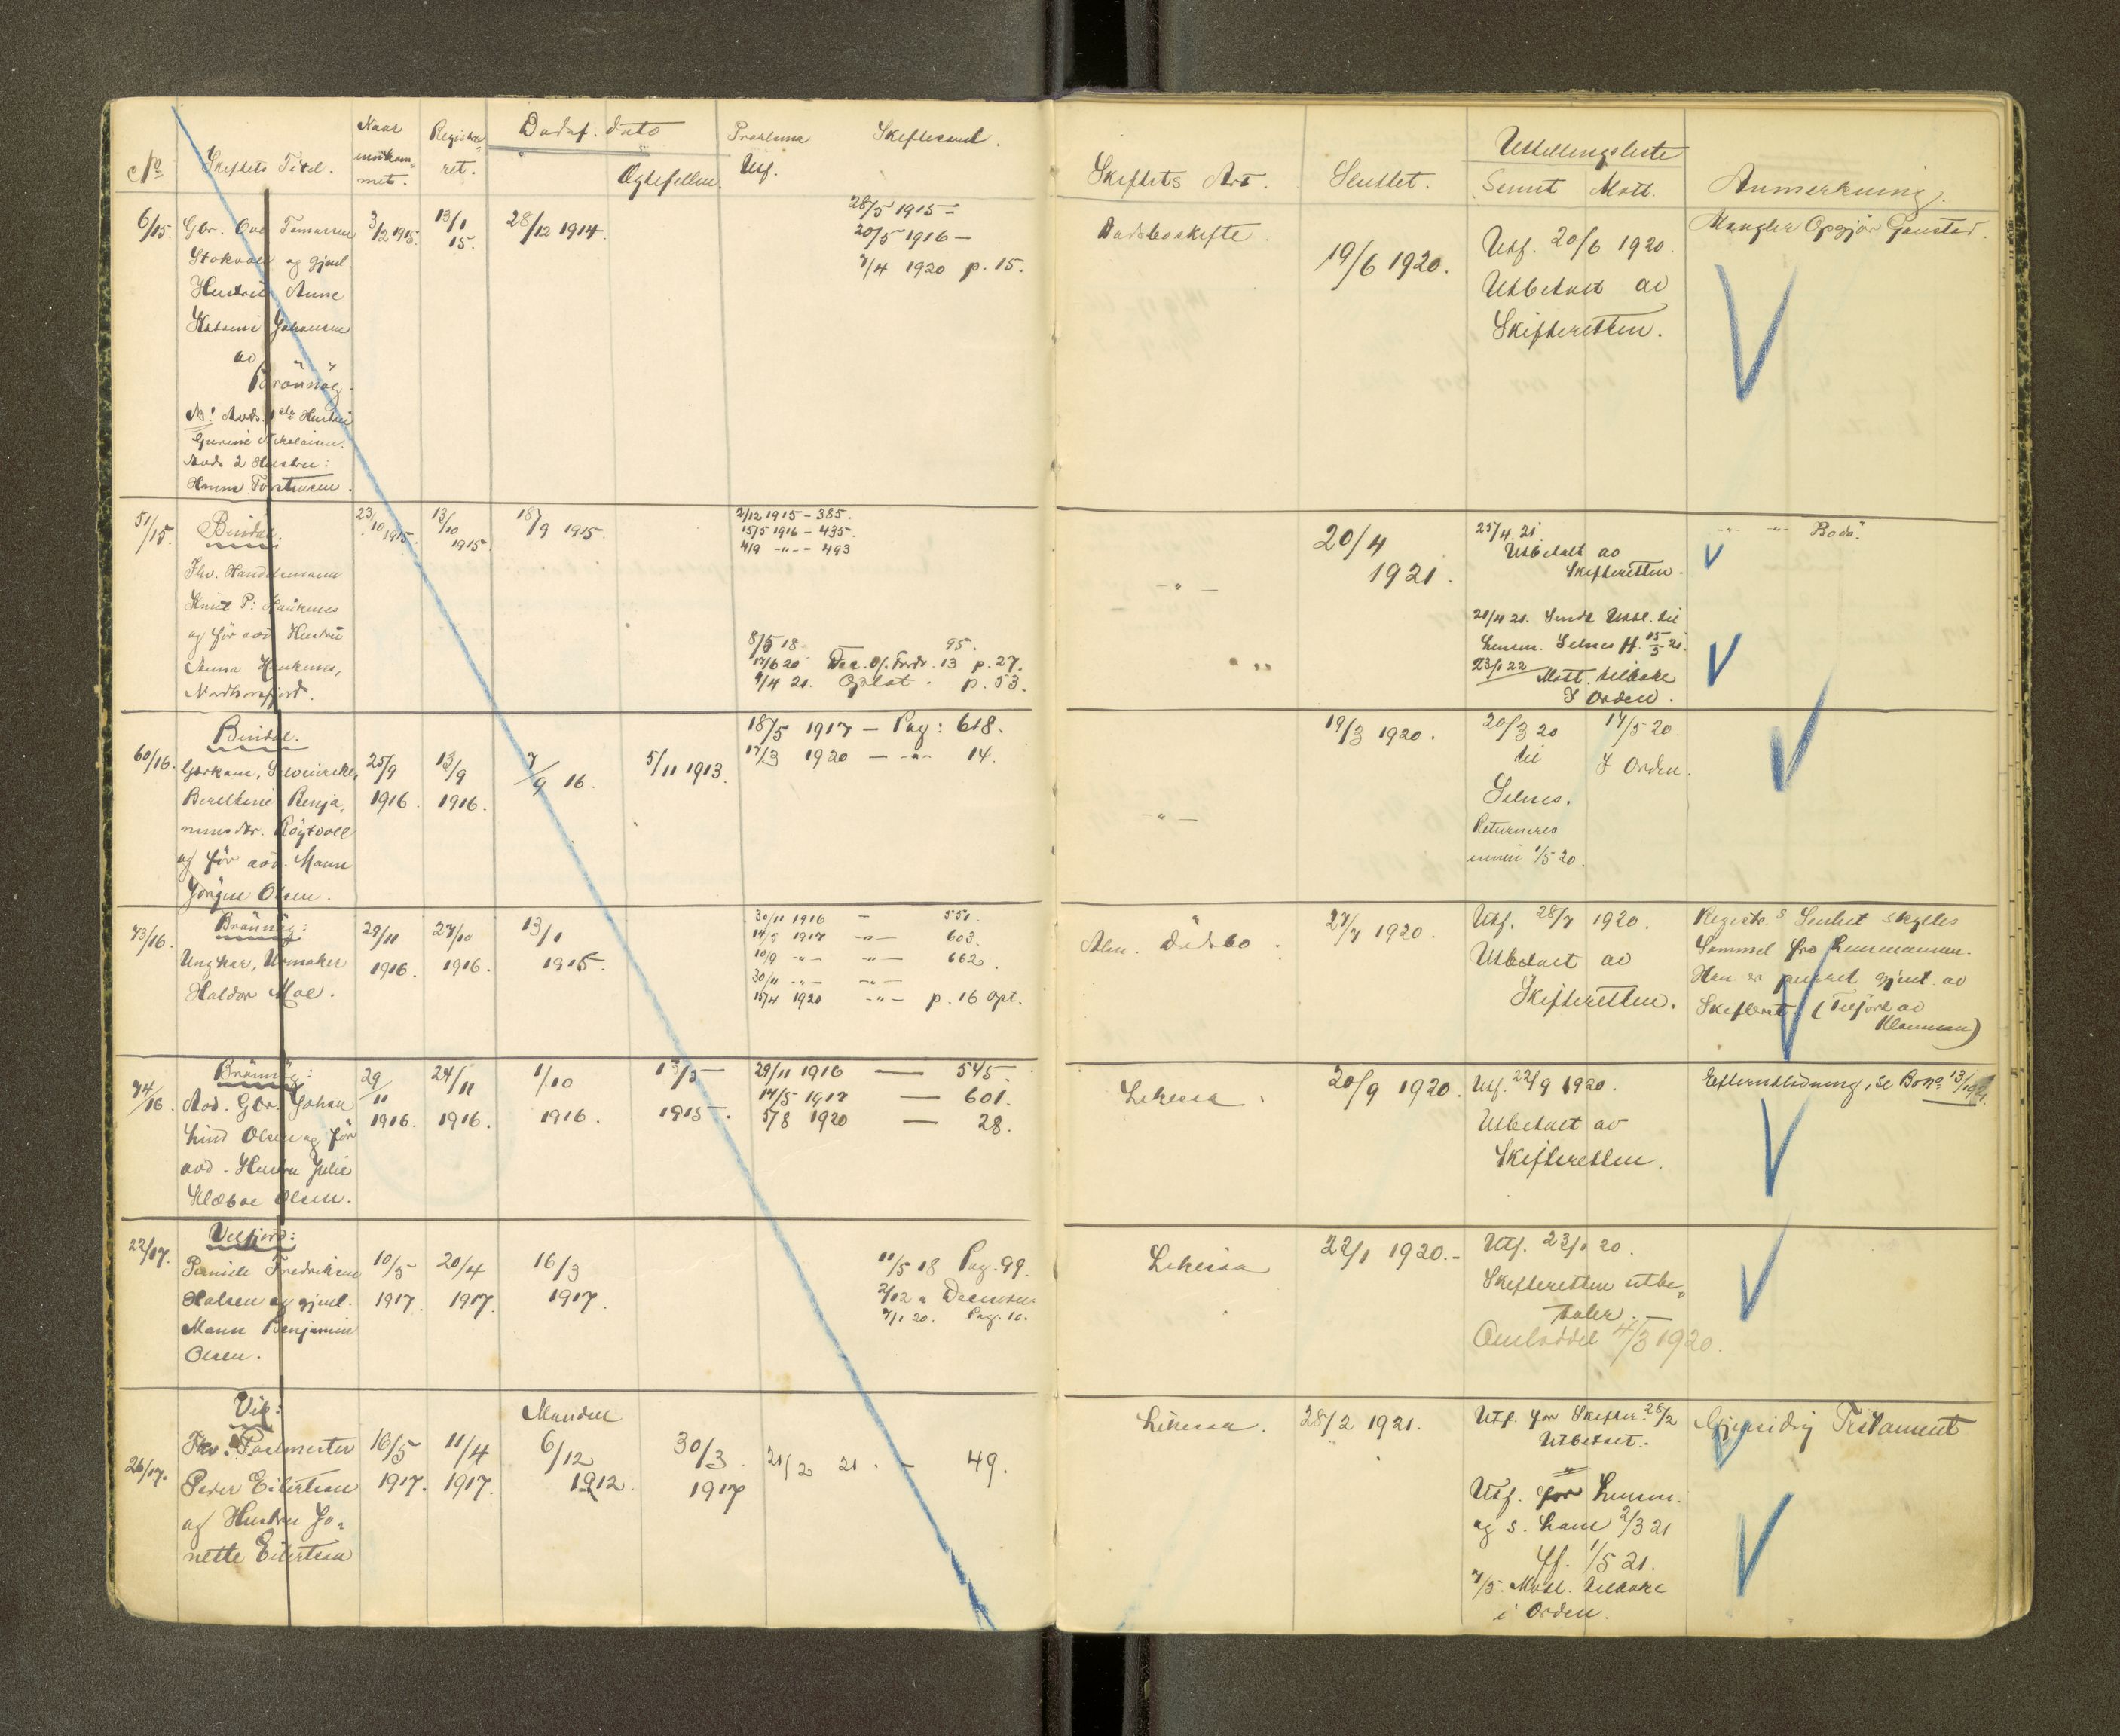 No Skiftets Titel. Naar innkom-met. Registre-ret. Dødsf. dato Ægtefellen. Proklama Utf. Skiftesaml.
Skiftets Art. Sluttet. Utdelingsliste Sendt Mott. Anmerkning.
6/15. Gbr. Ove
Stokvoll og gjenl.
Hustru Anne
Johansen
av
Brönnöy.
NB! Avds. 1ste Hustru
Nikolaisen.
Avds 2 Hustru:
Hanna Torstensen.
3/2 1915.
13/1 15.
28/12 1914.
28/5 1915 =
20/5 1916 —
7/4 1920 p. 15.
Dødsboskifte.
19/6 1920.
Utf. 20/6 1920.
Utbetalt av
Skifteretten.
Mangler Opgjör Gaustad.
51/15. Bindal.
Fhv. Handelsmann
Knut P. Haukenes
og för avd Hustru
Anna Haukenes,
Nordhorsfjord.
23/10 1915.
13/10 1915.
18/9 1915.
2/12 1915 - 385.
15/5 1916 - 435.
4/9 -"- - 493
8/5 18 95.
17/6 20 Dec. o/ Fordr. 13 p. 27.
9/4 21. Oplat. p. 53.
-"-
"
20/4
1921.
25/4 21.
Utbetalt av
Skifteretten.
21/4 21. Sendt Utbl. til
Lensm. Selnes ff. 15/5 21.
23/1 22 Mott. tilbake
I Orden.
-"- -"- Bodö.
60/16. Bindal.
Gbrkone,
Berethine Benja-
minsdtr. Röytvoll
og för avd. Mann
Jörgen Olsen.
25/9 1916.
13/9 1916.
7/9 16.
5/11 1913.
18/5 1917 — Pag: 618.
17/3 1920 — -"- 14.
-"-
19/3 1920.
20/3 20
til
Selnes.
Returneres
innen 1/5 20.
17/5 20.
I Orden.
73/16. Brönnöy:
Ungkar, Urmaker
Haldor Moe.
29/11 1916.
27/10 1916.
13/1 1915.
30/11 1916 — 551.
14/5 1917 -"- 603.
10/9 -"- -"- 662.
30/11 -"- -"-
15/4 1920 -"- p. 16 Opt.
Alm. dödsbo.
27/7 1920.
Utf. 28/7 1920.
Utbetalt av
Skifteretten.
Registr.s Senhet skyldes
Sommel fra Lensmannen.
Han er purret gjent. av
Skifteret. (Tilfört av
Klaussen)
74/16. Brönnöy:
Avd. Gbr. Johan
Lind Olsen og för
avd. Hustru Julie
Klæboe Olsen.
29/11 1916.
24/11 1916.
1/10 1916.
13/5 1915.
29/11 1916 — 545.
14/5 1917 — 601.
5/8 1920 — 28.
Likesaa.
20/9 1920.
Utf. 22/9 1920.
Utbetalt av
Skifteretten.
Efterutlodning, se Bo no 13/1921.
22/17. Velfjord:
Pernille Fredriksen
Halsen og gjenl.
Mann Benjamin
Olsen.
10/5 1917.
20/4 1917.
16/3 1917.
11/5 18 Pag. 99.
2/12 "
7/1 20. Pag. 10.
Likesaa
22/1 1920.-
Utf. 23/1 20.
Skifteretten utbe-
taler.
4/3 1920.
26/17. Vik:
Fhv. Postmester
Peder Eilertsen
og Hustru Jo-
nette Eilertsen
16/5 1917.
11/4 1917.
Manden
6/12 1912.
30/3 1917
21/2 21. - 49.
Likesaa.
28/2 1921.
Utf. for Skifter. 26/2
Utbetalt.
Utf. for Lensm.
og s. ham 2/3 21
ff. 1/5 21.
7/5. Mott. tilbake
i Orden.
Gjensidig Testament